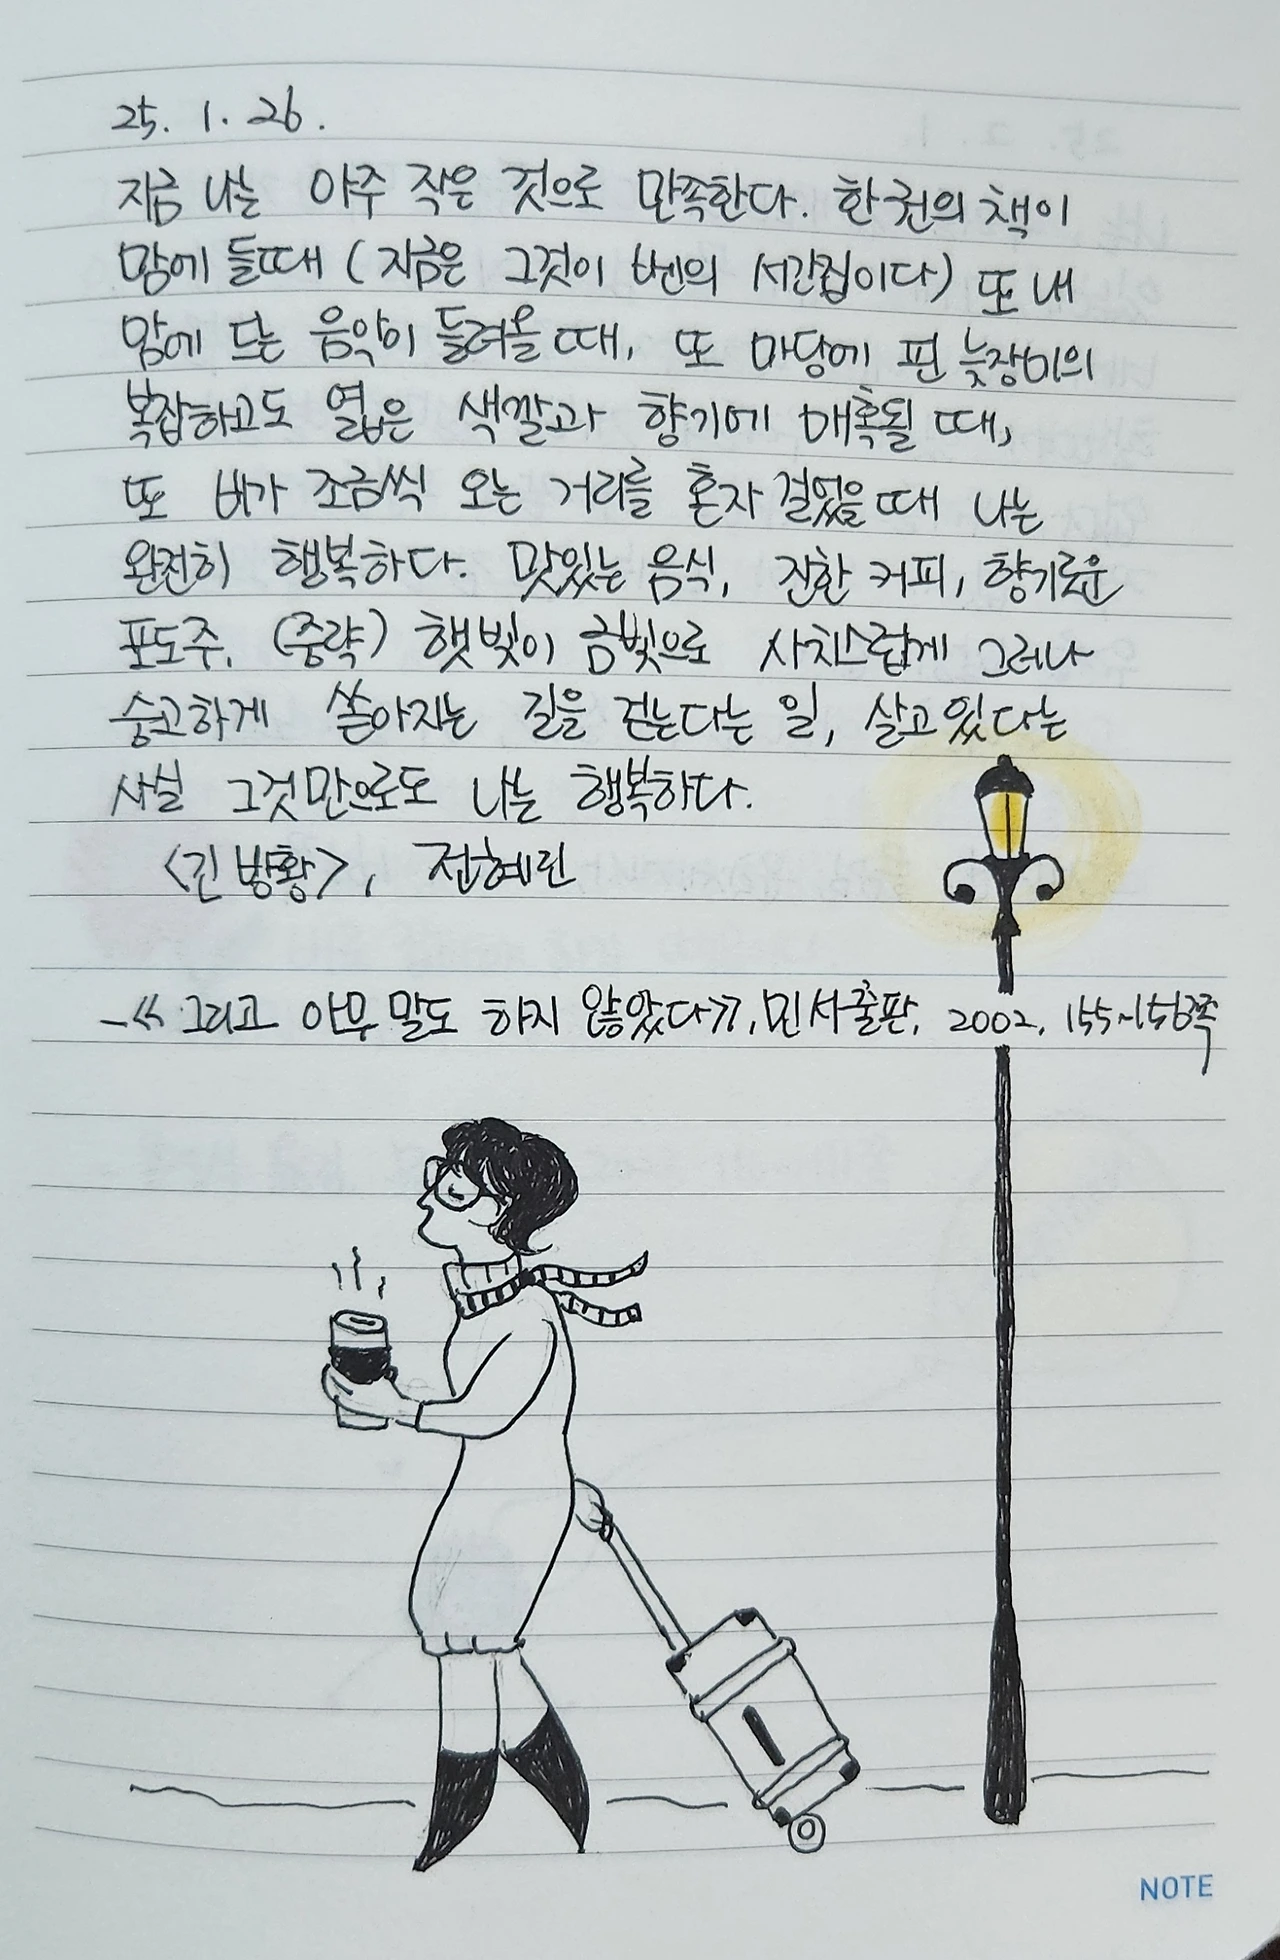 25. 1. 26.
지금 나는 아주 작은 것으로 만족한다. 한 권의 책이
맘에 들때 (지금은 그것이 벤의 시간집이다) 또 내
맘에 드는 음악이 들려올 때, 또 마당에 핀 늦장미의
복잡하고도 엷은 색깔과 향기에 매혹될 때,
또 비가 조금씩 오는 거리를 혼자 걸었을 때 나는
완전히 행복하다. 맛있는 음식, 진한 커피, 향기로운
포도주, (중략) 햇빛이 금빛으로 사치스럽게 그러나
숭고하게 쏟아지는 길을 걷는다는 일, 살고 있다는
사실 그것만으로도 나는 행복하다.
<긴 방황>, 전혜린
-≪그리고 아무 말도 하지 않았다≫, 민서출판, 2002, 155~156쪽
NOTE